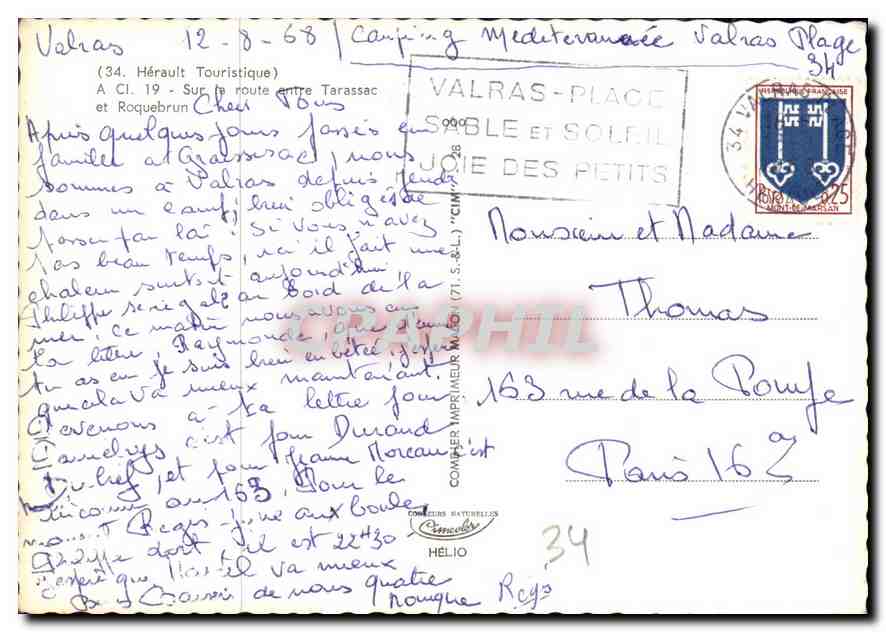 Valras 12-8-68 / Camping Mediterranée Valras Plage
34
(34. Hérault Touristique)
A Cl. 19 - Sur la route entre Tarassac
et Roquebrun
Chers Tous
Après quelques jours passés en
famille à Graissessac, nous
sommes à Valras depuis
dans un camp, bien obligés de
passer par là ! Si vous n'avez
pas beau temps, ici il fait une
chaleur surtout aujourd'hui
Philippe se régale au bord de la
mer ; ce matin nous avons eu
ta lettre, Raymonde, que d'ennuis
tu as eu je suis bien embêtée, j'espère
que cela va mieux maintenant.
Revenons à ta lettre pour
c'est pour Durand
et pour Jeanne Moreau c'est
au 163. Pour le
moment Régis joue aux boules,
Philippe dort, il est 22H30
J'espère que va mieux
Bons Baisers de nous quatre
Monique Régis
VALRAS-PLAGE
SABLE ET SOLEIL
JOIE DES PETITS
34 VALRAS
REPUBLIQUE FRANÇAISE
0,25
MONT-DE-MARSAN
Monsieur et Madame
Thomas
163 rue de la Pompe
Paris 16e
COMBIER IMPRIMEUR MACON (71. S.-&-L.) "CIM"
COULEURS NATURELLES
Cimcolor
HÉLIO
34
CPAPHIL